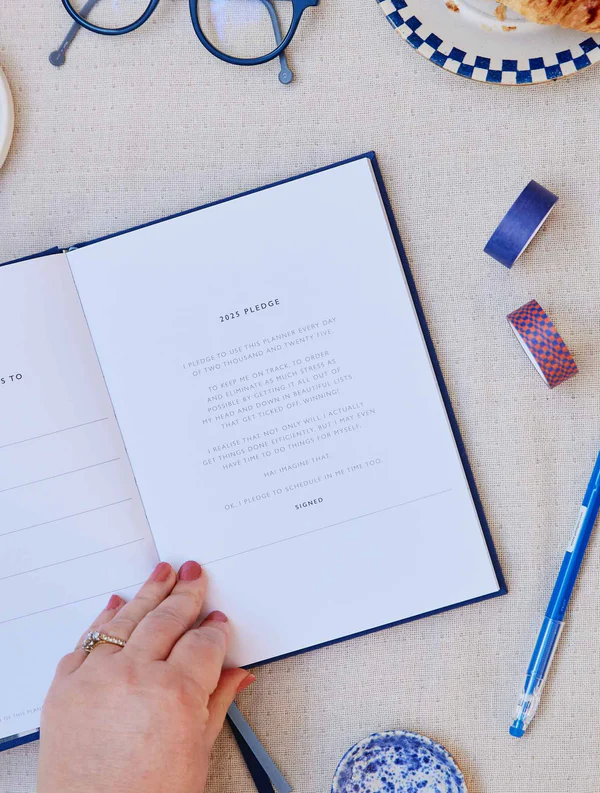 S TO
OF THIS PLAN
2025 PLEDGE
I PLEDGE TO USE THIS PLANNER EVERY DAY
OF TWO THOUSAND AND TWENTY FIVE.
TO KEEP ME ON TRACK, TO ORDER
AND ELIMINATE AS MUCH STRESS AS
POSSIBLE BY GETTING IT ALL OUT OF
MY HEAD AND DOWN IN BEAUTIFUL LISTS
THAT GET TICKED OFF. WINNING!
I REALISE THAT NOT ONLY WILL I ACTUALLY
GET THINGS DONE EFFICIENTLY, BUT I MAY EVEN
HAVE TIME TO DO THINGS FOR MYSELF.
HA! IMAGINE THAT.
OK, I PLEDGE TO SCHEDULE IN ME TIME TOO.
SIGNED